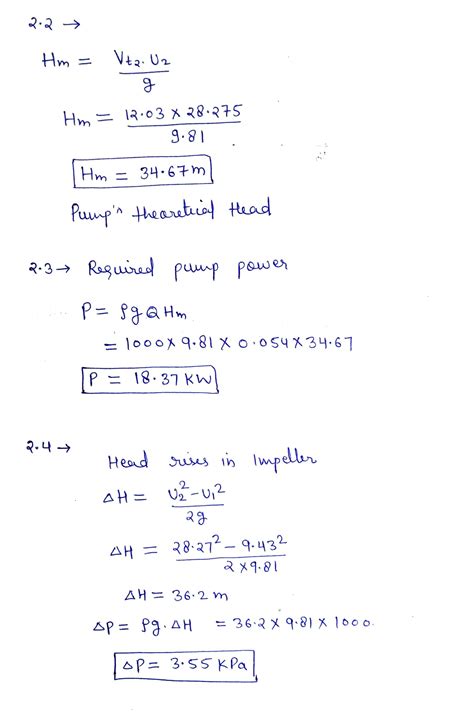 2.2 →
Hm = Vt2. U2 / g
Hm = 12.03 × 28.275 / 9.81
Hm = 34.67m
Pump's theoretical Head
2.3 → Required pump power
P = ρg Q Hm
= 1000 × 9.81 × 0.054 × 34.67
P = 18.37 KW
2.4 →
Head rises in Impeller
ΔH = U2² - U1² / 2g
ΔH = 28.27² - 9.43² / 2 × 9.81
ΔH = 36.2 m
ΔP = ρg. ΔH = 36.2 × 9.81 × 1000.
ΔP = 3.55 KPa